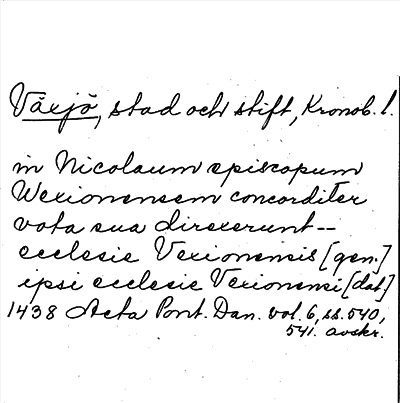 Växjö, stad och stift, Kronob. l.
in Nicolaum episcopum
Wexionensem concorditer
vota sua direxerunt--
ecclesie Vexionensis [gen.]
ipsi ecclesie Vexionensi [dat.]
1438 Acta Pont. Dan. vol. 6, ss. 540,
541. avskr.